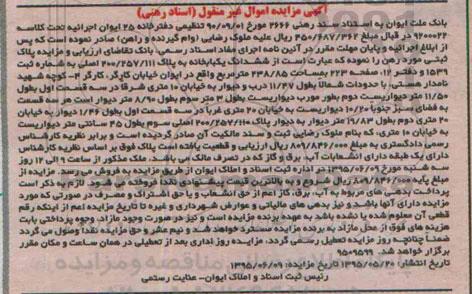 آگهی مزایده اموال غیر منقول (اسناد رهنی)
بانک ملت ایوان به استناد سند رهنی ۲۶۶۶ مورخ ۹۰/۰۹/۰۶ تنظیمی دفترخانه ۲۵ ایوان اجرائیه تحت کلاسه
۹۲۰۰۰۲۲ در قبال مبلغ ۴۵۰/۶۸۷/۳۶۲ ریال علیه ملوک رضایی (وام گیرنده و راهن) صادر نموده است که پس
از ابلاغ اجرائیه و پایان مهلت مقرر در آئین نامه اجرای مفاد اسناد رسمی، بانک تقاضای ارزیابی و مزایده پلاک
ثبتی مورد رهن را نموده که عبارت است از: ششدانگ یکبابخانه به پلاک ۲۰۰/۲۵۷/۱۱۱ اصلی به شماره ثبت
۱۵۳۹ و دفتر ۱۲، صفحه ۲۲۳ بمساحت ۲۳۸/۸۵ مترمربع واقع در ایوان خیابان کارگر، کارگر ۴- کوچه شهید
نامدار هستی، با حدودات شمالا بطول ۱۱/۴۷ درب و دیوار به خیابان ۱۰ متری شرقا در سه قسمت اول بطول
۱۱/۵۰ متر دیواریست دوم بطور مورب دیواریست بطول ۳ متر سوم بطول ۹/۱۰ متر دیوار است هر سه قسمت
به فضای سبز جنوبا ۱۰/۲۰ دیواریست به خیابان ۲۰ متری غربا در سه قسمت اول بطول ۱/۴۶ دیوار به خیابان
۲۰ متری دوم بطول ۱۹/۸۳ متر دیوار به دیوار پلاک ۲۰۰/۲۵۷/۱۱۰ اصلی سوم بطول ۴۵ سانتی متر دیواریست
به خیابان ۱۰ متری، که بنام ملوک رضایی ثبت و سند مالکیت آن صادر گردیده است و برابر نظریه کارشناس
رسمی دادگستری به مبلغ ۸۰۹/۸۴۶/۰۰۰ ریال ارزیابی و قطعیت یافته است پلاک فوق بر اساس نظریه کارشناس
دارای یک طبقه دارای انشعابات آب، برق و گاز که در تصرف مالک می باشد. ملک مذکور از ساعت ۹ الی ۱۲ روز
سه شنبه مورخ ۱۳۹۵/۰۶/۰۹ در اداره ثبت اسناد و املاک ایوان از طریق مزایده به فروش می رسد. مزایده از
مبلغ پایه ۸۰۹/۸۴۶/۰۰۰ ریال شروع و به بالاترین قیمت پیشنهادی نقدا فروخته می شود. لازم به ذکر است
پرداخت بدهی های مربوط به آب، برق، گاز اعم از حق انشعاب و یا حق اشتراک و مصرف در صورتی که مورد
مزایده دارای آنها باشد و نیز بدهی های مالیاتی و عوارض شهرداری و غیره تا تاریخ مزایده اعم از اینکه رقم
قطعی آن معلوم شده یا نشده باشد به عهده برنده مزایده است و نیز در صورت وجود مازاد، وجوه پرداختی بابت
هزینه های فوق از محل مازاد به برنده مزایده مسترد خواهد شد و نیم عشر و حق مزایده نقدا وصول می گردد
ضمنا چنانچه روز مزایده تعطیل رسمی گردد، مزایده روز اداری بعد از تعطیلی در همان ساعت و مکان مقرر
برگزار خواهد شد. ۹۵۰۹۵۹۹
تاریخ انتشار: ۱۳۹۵/۰۵/۲۰ تاریخ مزایده: ۱۳۹۵/۰۶/۰۹
رئیس ثبت اسناد و املاک ایوان- عنایت رستمی